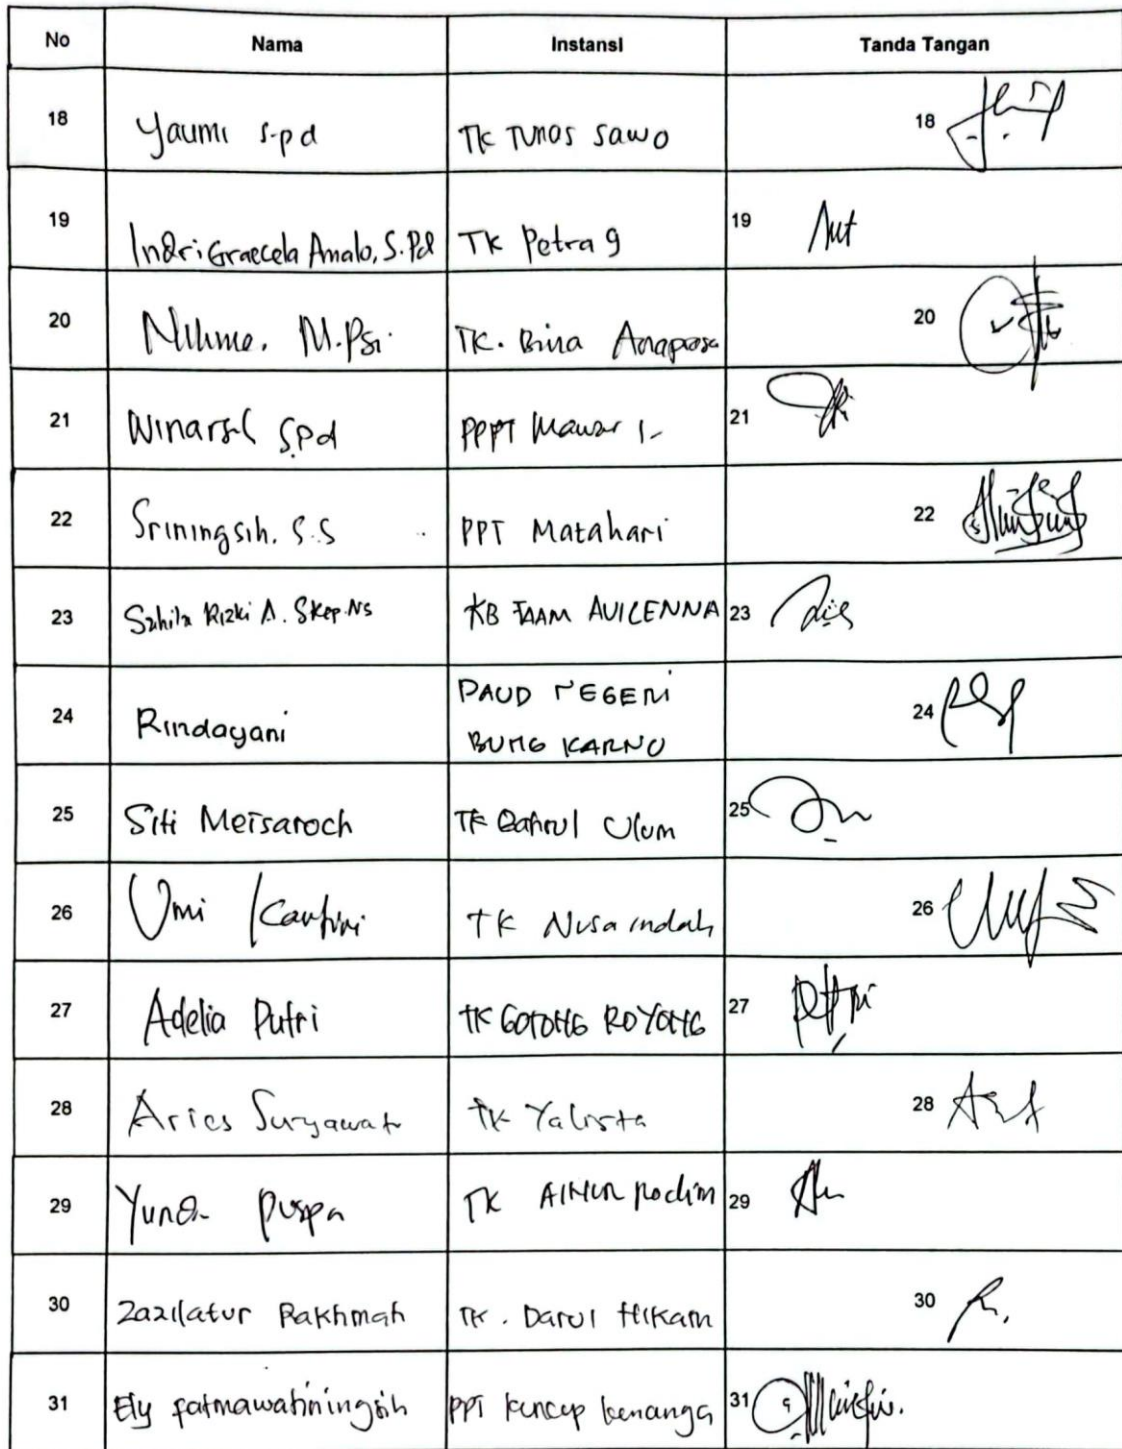 No Nama Instansi Tanda Tangan
18 Yaumi S.pd TK TUNAS SAWO 18
19 Indri Graecela Amalo, S.Pd TK Petra 9 19
20 M.Psi. TK. Bina Anaprasa 20
21 Winarsi S.Pd PPPT Mawar 1 21
22 Sriningsih. S.S PPT Matahari 22
23 Sahila Rizki A. SKep.Ns KB TAAM AVICENNA 23
24 Rindayani PAUD NEGERI 24
BUNG KARNO
25 Siti Meisaroch TK Bahrul Ulum 25
26 Umi Kartini TK Nusa indah 26
27 Adelia Putri TK GOTONG ROYONG 27
28 Aries Suryawat TK Yalista 28
29 Puspa TK AINUR 29
30 Zazilatur Rakhmah TK. Darul Hikam 30
31 Ely fatmawatiningsih PPT kuncup kenanga 31